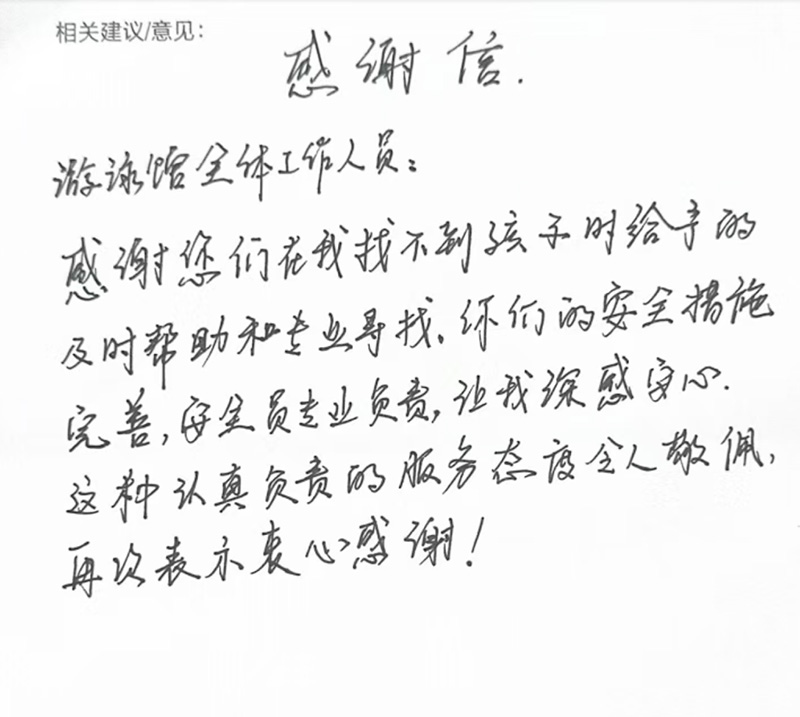 相关建议/意见：
感谢信.
游泳馆全体工作人员：
感谢您们在我找不到孩子时给予的
及时帮助和专业寻找。你们的安全措施
完善，安全员专业负责，让我深感安心.
这种认真负责的服务态度令人敬佩，
再次表示衷心感谢！